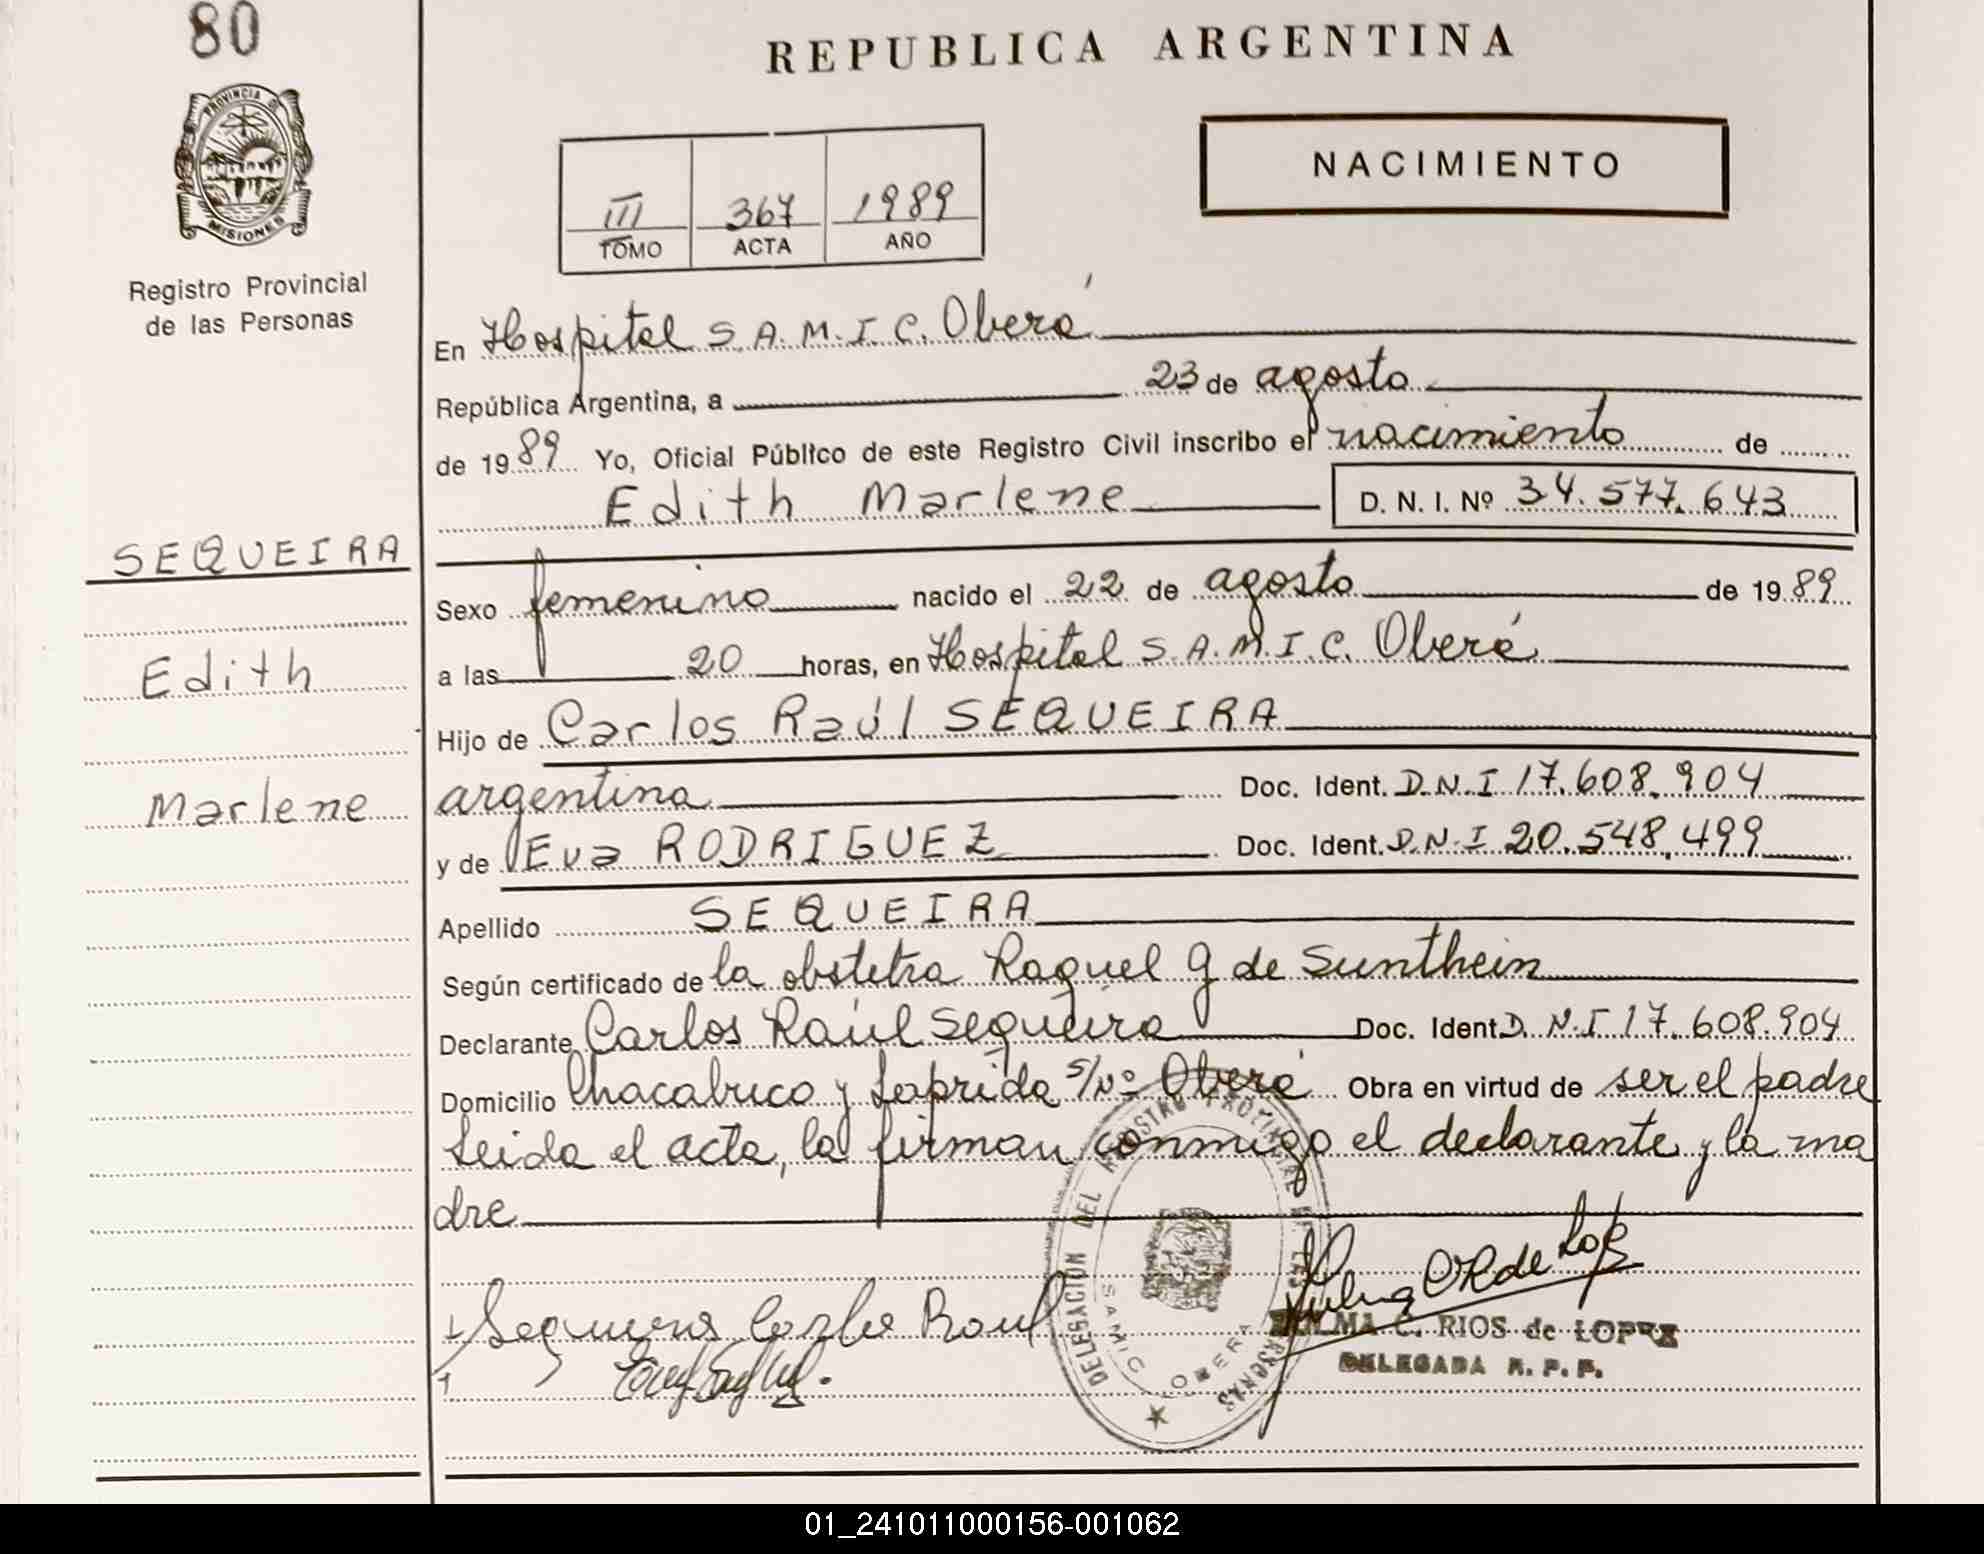 80
REPUBLICA ARGENTINA
PROVINCIA DE
MISIONES
NACIMIENTO
III 367 1989
TOMO ACTA AÑO
Registro Provincial
de las Personas
En Hospital S.A.M.I.C. Oberá
República Argentina, a 23 de agosto
de 1989 Yo, Oficial Público de este Registro Civil inscribo el nacimiento de
Edith Marlene D. N. I. Nº 34.577.643
SEQUEIRA
Sexo femenino nacido el 22 de agosto de 1989
a las 20 horas, en Hospital S.A.M.I.C. Oberá
Edith
Hijo de Carlos Raúl SEQUEIRA
argentina Doc. Ident. D.N.I 17.608.904
Marlene
y de Eva RODRIGUEZ Doc. Ident. D.N.I 20.548.499
Apellido SEQUEIRA
Según certificado de la obstetra Raquel G de Sunthein
Declarante Carlos Raúl Sequeira Doc. Ident D.N.I 17.608.904
Domicilio Chacabuco y Laprida s/Nº Oberá Obra en virtud de ser el padre
Leida el acta, la firman conmigo el declarante y la ma
dre
Sequeira Carlos Raul
DELEGACIÓN DEL REGISTRO PROVINCIAL DE LAS PERSONAS
SAMIC OBERA
C. RIOS de LOPEZ
DELEGADA R. P. P.
01_241011000156-001062